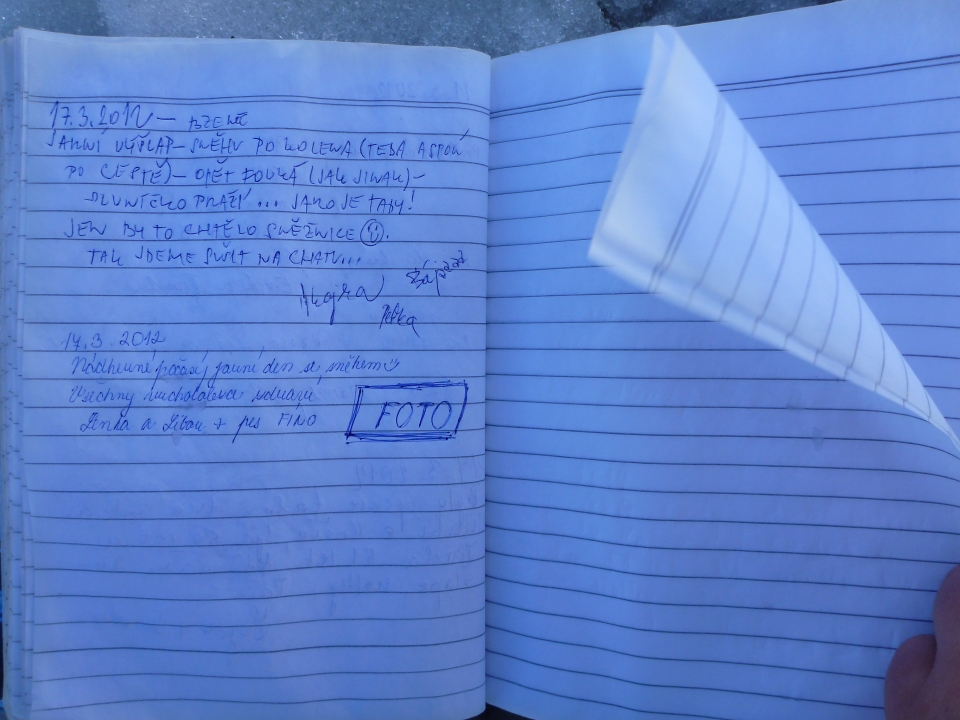 17.3.2012 –
JARNÍ VÝŠLAP – SNĚHU PO KOLENA (TEDA ASPOŇ
PO CESTĚ) – OPĚT FOUKÁ (JAK JINAK) –
SLUNÍČKO PRAŽÍ ... JAKO JE TADY!
JEN BY TO CHTĚLO SNĚŽNICE ☺.
TAK JDEME SUŠIT NA CHATU...
17.3.2012
Nádherné počasí, jarní den se sněhem ☺
Všechny vrcholařva
Lenka a Libor + pes FINO
FOTO